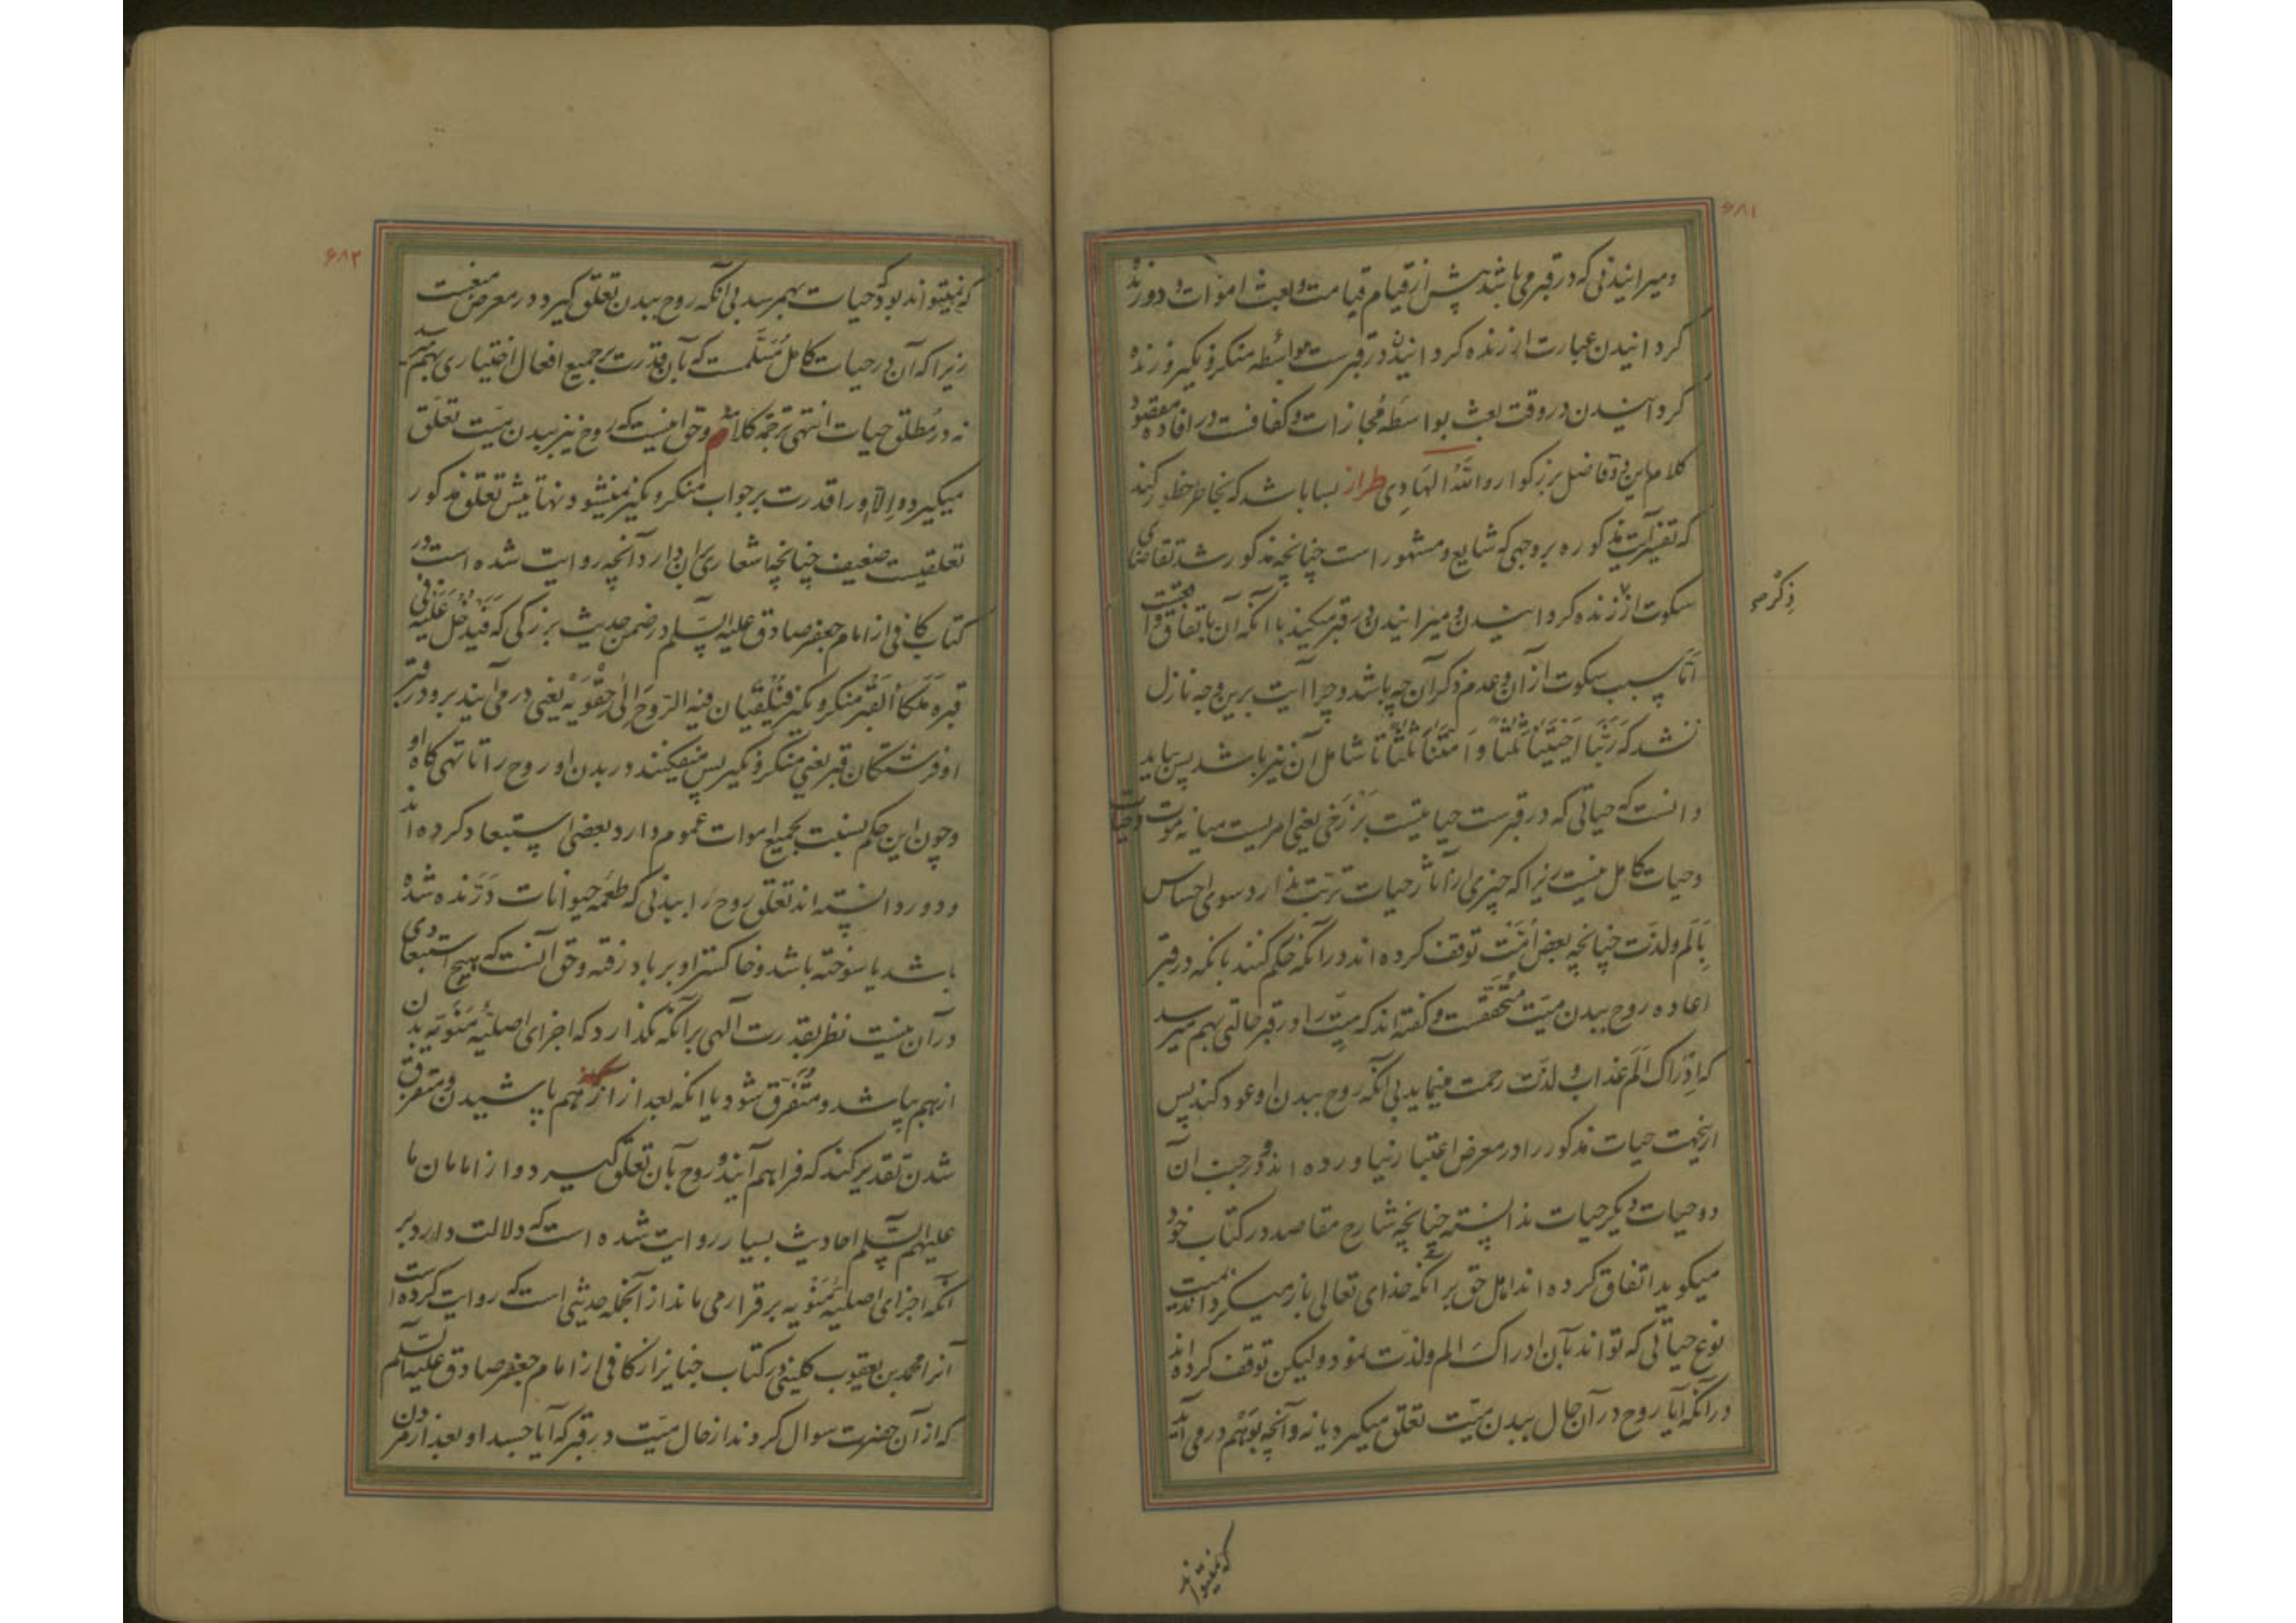 ۶۸۱
و میرانیدنی که در قبر می باشد پیش از قیام قیامت و بعث اموات و دو زنده
کردانیدن عبارت از زنده کردانیدن در قبرست بواسطه منکر و نکیر و زنده
کردانیدن در وقت بعث بواسطه مجازات و مکافات در افاده مقصود
کلام این دو فاضل بزرکوار والله الهادی طراز بسا باشد که بخاطر خطور کند
که تفسیر آیت مذکوره بروجهی که شایع و مشهور است چنانچه مذکور شد تقاضای
سکوت از زنده کردانیدن و میرانیدن در قبر میکند با آنکه آن باتفاق
ذکر
اما سبب سکوت از آن و عدم ذکر آن چه باشد و چرا آیت برین وجه نازل
نشد که رَبَّنا اَحْیَیْتَنا ثَلثاً وَ اَمَتَّنا ثَلثاً تا شامل آن نیز باشد پس باید
دانست که حیاتی که در قبرست حیاتیست برزخی یعنی امریست میانه موت و حیات
و حیات کامل نیست زیرا که چیزی از آثار حیات ترتب ندارد سوی احساس
بِاَلَم و لذت چنانچه بعض امت توقف کرده اند در آنکه حکم کنند بانکه در قبر
اعاده روح ببدن میت متحققست و کفته اند که میت را در قبر حالتی بهم میرسد
که ادراک الم عذاب و لذت رحمت مینماید بی آنکه روح ببدن او عود کند پس
ازینجهت حیات مذکور را در معرض اعتبار نیاورده اند و در جنب آن
دو حیات دیکر حیات ندانسته چنانچه شارح مقاصد در کتاب خود
میکوید اتفاق کرده اند اهل حق بر آنکه خدای تعالی باز میکرداند بمیت
نوع حیاتی که تواند بآن ادراک الم و لذت نمود ولیکن توقف کرده اند
در آنکه آیا روح در آن حال ببدن میت تعلق میکیرد یا نه و آنچه بوَهْم در می آید
که نمیتواند
۶۸۲
که نمیتواند بود که حیات بهم رسد بی آنکه روح ببدن تعلق کیرد در معرض منعست
زیرا که آن در حیات کامل مُسَلَّمست که بآن قدرت بر جمیع افعال اختیاری بهم میرسد
نه در مطلق حیات انتهی ترجمة کلامه و حق اینست که روح نیز ببدن میت تعلق
میکیرد و الا او را قدرت بر جواب منکر و نکیر نمیشود نهایتش تعلق مذکور
تعلقیست ضعیف چنانچه اشعاری بران دارد آنچه روایت شده است در
کتاب کافی از امام جعفر صادق علیه السلم در ضمن حدیث بزرکی که فَیَدْخُلُ عَلَیْهِ فی
قَبْرِه مَلَکَا القَبْر منکر و نکیر فَیُلْقِیان فیه الرّوحَ اِلی حَقْوَیْه یعنی در می آیند برو در قبر
او فرشتکان قبر یعنی منکر و نکیر پس میفکنند در بدن او روح را تا تهی کاه او
و چون این حکم بنسبت بجمیع اموات عموم دارد بعضی استبعاد کرده اند
و دور دانسته اند تعلق روح را ببدنی که طعمه حیوانات درنده شده
باشد یا سوخته باشد و خاکستر او بر باد رفته و حق آنست که هیچ استبعادی
در آن نیست نظر بقدرت آلهی بر آنکه نکذارد که اجزای اصلیّه مَنَویّه بدن
از هم بپاشد و متفرق شود یا انکه بعد از از هم پاشیدن و متفرق
شدن تقدیر کند که فراهم آیند و روح بآن تعلق کیرد و از امامان ما
علیهم السلم احادیث بسیار روایت شده است که دلالت دارد بر
آنکه اجزای اصلیه منویه برقرار می ماند از آنجمله حدیثی است که روایت کرده است
آنرا محمد بن یعقوب کلینی در کتاب جنایز از کافی از امام جعفر صادق علیه السلم
که از آن حضرت سوال کردند از حال میت در قبر که آیا جسد او بعد از مردن